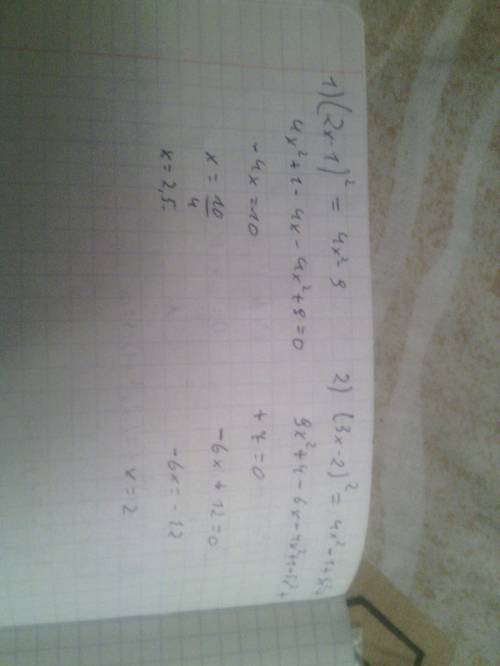 1) (2x-1)² = 4x²-9
4x²+1-4x-4x²+9=0
-4x=10
x = 10/4
x = 2,5.
2) (3x-2)² = 4x²-1+5x²
9x²+4-6x-4x²+1-5x²+
+7=0
-6x+12=0
-6x=-12
x=2